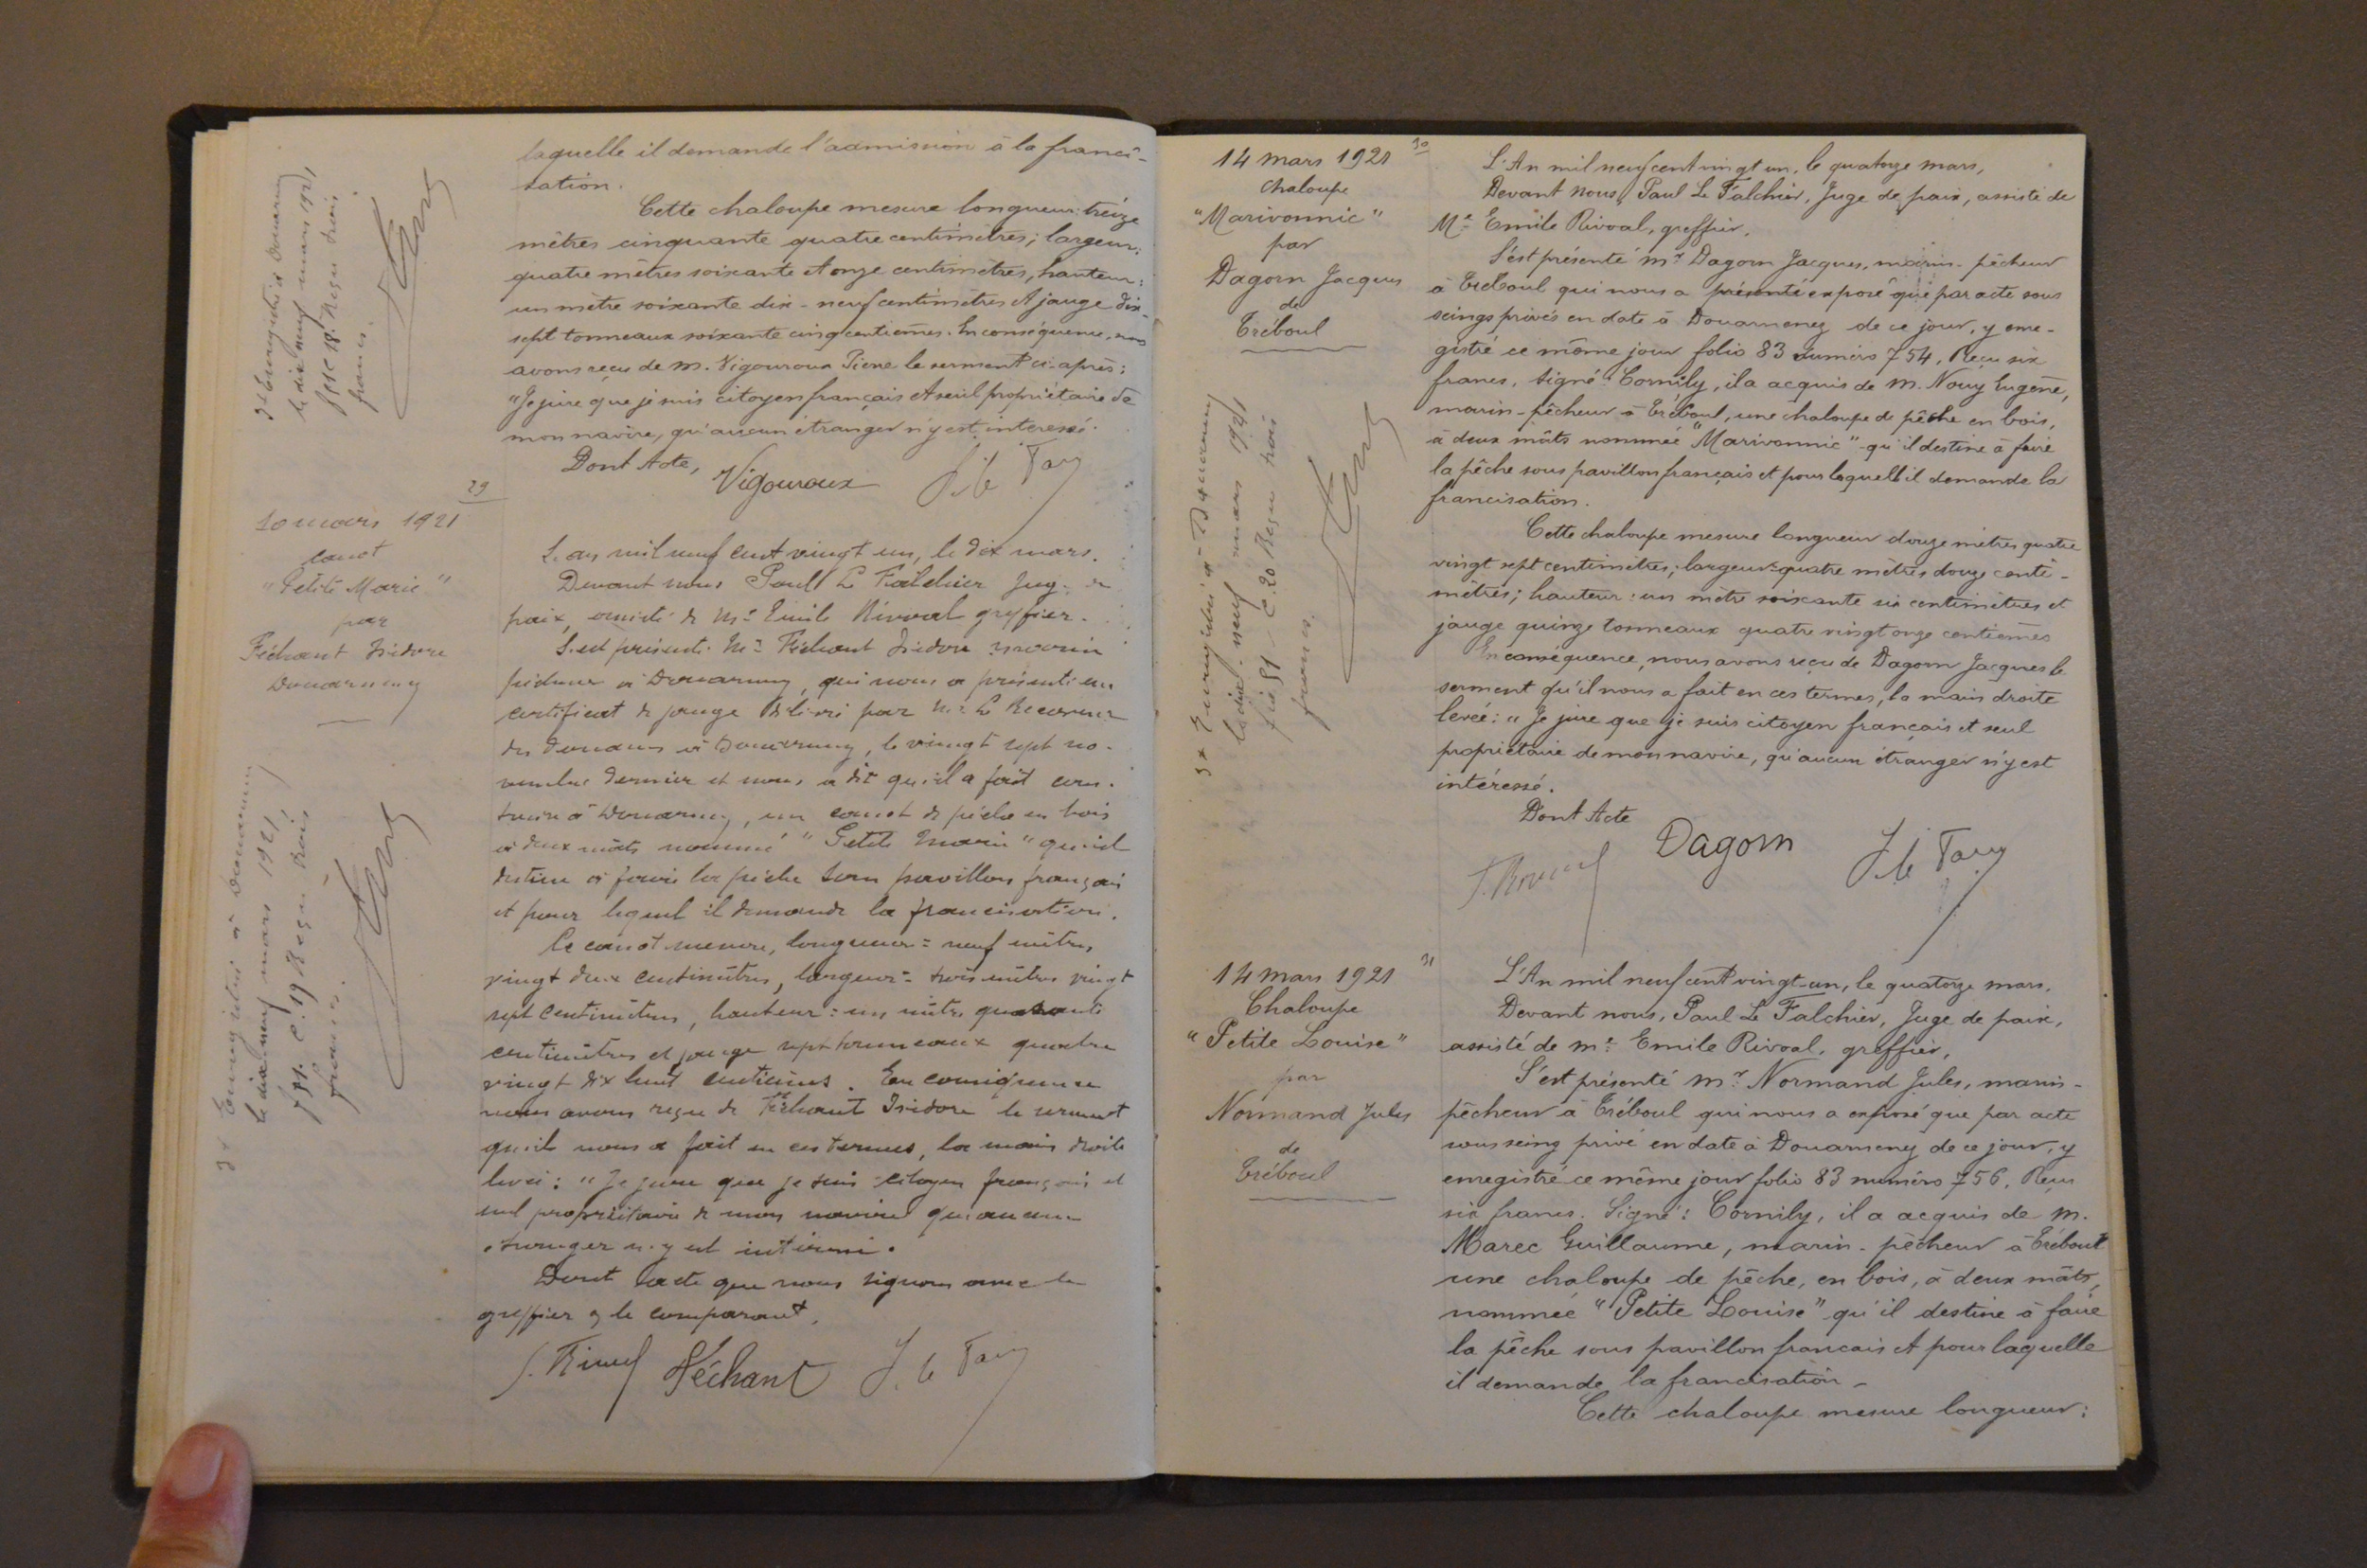 laquelle il demande l'admission à la franci-
sation.
Cette chaloupe mesure longueur: treize
mètres cinquante quatre centimètres; largeur:
quatre mètres soixante et onze centimètres, hauteur:
un mètre soixante dix-neuf centimètres et jauge dix-
sept tonneaux soixante cinq centièmes. En conséquence, nous
avons reçu de M. Vigouroux Pierre le serment ci-après:
"Je jure que je suis citoyen français et seul propriétaire de
mon navire, qu'aucun étranger n'y est intéressé.
Dont Acte,
Vigouroux
le dix neuf mars 1921
Reçu trois
francs.
29
10 mars 1921
canot
"Petite Marie"
par
Féchant Isidore
Douarnenez
L'an mil neuf cent vingt un, le dix mars.
Devant nous Paul Le Falchier Juge de
paix, assisté de Me Emile Rivoal greffier.
S'est présenté Mr Féchant Isidore marin
pêcheur à Douarnenez, qui nous a présenté un
certificat de jauge délivré par Mr Le Receveur
des douanes à Douarnenez, le vingt sept no-
vembre dernier et nous a dit qu'il a fait cons-
truire à Douarnenez, un canot de pêche en bois
à deux mâts nommé "Petite Marie" qu'il
destine à faire la pêche sous pavillon français
et pour lequel il demande la francisation.
Ce canot mesure, longueur = neuf mètres
vingt deux centimètres, largeur = trois mètres vingt
sept centimètres, hauteur: un mètre quarante
centimètres et jauge sept tonneaux quatre
vingt dix huit centièmes. En conséquence
nous avons reçu de Féchant Isidore le serment
qu'il nous a fait en ces termes, la main droite
levée: "Je jure que je suis citoyen français et
seul propriétaire de mon navire qu'aucun
étranger n'y est intéressé.
Dont acte que nous signons avec le
greffier & le comparant.
Féchant
Enregistré à Douarnenez
le dix neuf mars 1921
c. 19 Reçu trois
francs.
14 mars 1921
Chaloupe
"Marivonnic"
par
Dagorn Jacques
de
Tréboul
30
L'An mil neuf cent vingt un, le quatorze mars,
Devant nous, Paul Le Falchier, Juge de paix, assisté de
Me Emile Rivoal, greffier.
S'est présenté Mr Dagorn Jacques, marin-pêcheur
à Tréboul qui nous a présenté exposé que par acte sous
seings privés en date à Douarnenez de ce jour, y enre-
gistré ce même jour folio 83 numéro 754. Reçu six
francs. Signé: Cornily, il a acquis de M. Nouy Eugène,
marin-pêcheur à Tréboul, une chaloupe de pêche en bois,
à deux mâts nommée "Marivonnic" qu'il destine à faire
la pêche sous pavillon français et pour laquelle il demande la
francisation.
Cette chaloupe mesure longueur douze mètres quatre
vingt sept centimètres; largeur: quatre mètres douze centi-
mètres; hauteur: un mètre soixante six centimètres et
jauge quinze tonneaux quatre vingt onze centièmes
En conséquence, nous avons reçu de Dagorn Jacques le
serment qu'il nous a fait en ces termes, la main droite
levée: "Je jure que je suis citoyen français et seul
propriétaire de mon navire, qu'aucun étranger n'y est
intéressé.
Dont Acte
Dagorn
Enregistré à Douarnenez
le dix-neuf mars 1921
c. 20 Reçu trois
francs.
14 mars 1921
Chaloupe
"Petite Louise"
par
Normand Jules
de
Tréboul
31
L'An mil neuf cent vingt-un, le quatorze mars.
Devant nous, Paul Le Falchier, Juge de paix,
assisté de Me Emile Rivoal, greffier,
S'est présenté Mr Normand Jules, marin-
pêcheur à Tréboul qui nous a exposé que par acte
sous seing privé en date à Douarnenez de ce jour, y
enregistré ce même jour folio 83 numéro 756. Reçu
six francs. Signé: Cornily, il a acquis de M.
Marec Guillaume, marin-pêcheur à Tréboul
une chaloupe de pêche, en bois, à deux mâts,
nommée "Petite Louise" qu'il destine à faire
la pêche sous pavillon francais et pour laquelle
il demande la francisation -
Cette chaloupe mesure longueur: